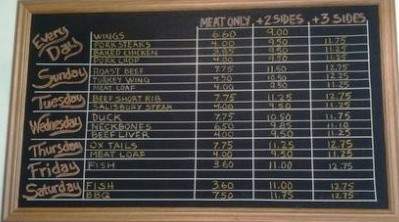 MEAT ONLY +2 SIDES +3 SIDES
Every Day
WINGS 6.60 9.00
PORK STEAKS 4.00 9.50 11.75
BAKED CHICKEN 9.25 11.25
PORK CHOP 4.00 9.50 11.75
Sunday
ROAST BEEF 7.75 11.50 12.75
TURKEY WING 10.50 12.25
MEAT LOAF 4.00 9.50 11.25
Tuesday
BEEF SHORT RIB 7.75 11.25 12.75
SALISBURY STEAK 4.00 9.50 11.75
Wednesday
DUCK 7.75 10.50 11.75
NECKBONES 6.50 9.85 11.10
BEEF LIVER 4.00 9.50 11.25
Thursday
OX TAILS 7.75 11.25 12.75
MEAT LOAF 4.00 9.50 11.75
Friday
FISH 3.60 11.00 12.75
Saturday
FISH 3.60 11.00 12.75
BBQ 7.50 11.75 12.75